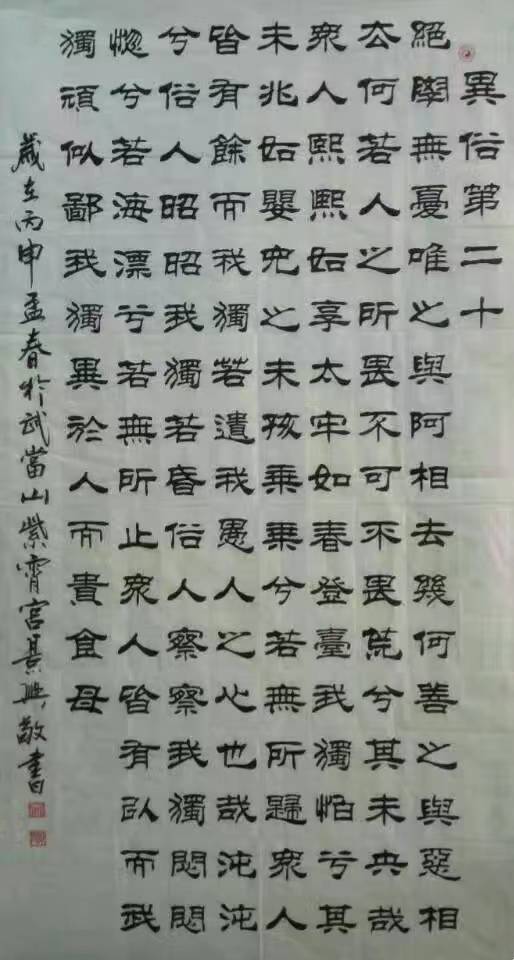 異俗第二十
絕學無憂唯之與阿相去幾何善之與惡相
去何若人之所畏不可不畏荒兮其未央哉
衆人熙熙如享太牢如春登臺我獨怕兮其
未兆如嬰兒之未孩乘乘兮若無所歸衆人
皆有餘而我獨若遺我愚人之心也哉沌沌
兮俗人昭昭我獨若昏俗人察察我獨悶悶
惚兮若海漂兮若無所止衆人皆有以而我
獨頑似鄙我獨異於人而貴食母
歲在丙申孟春於武當山紫霄宮景興敬書